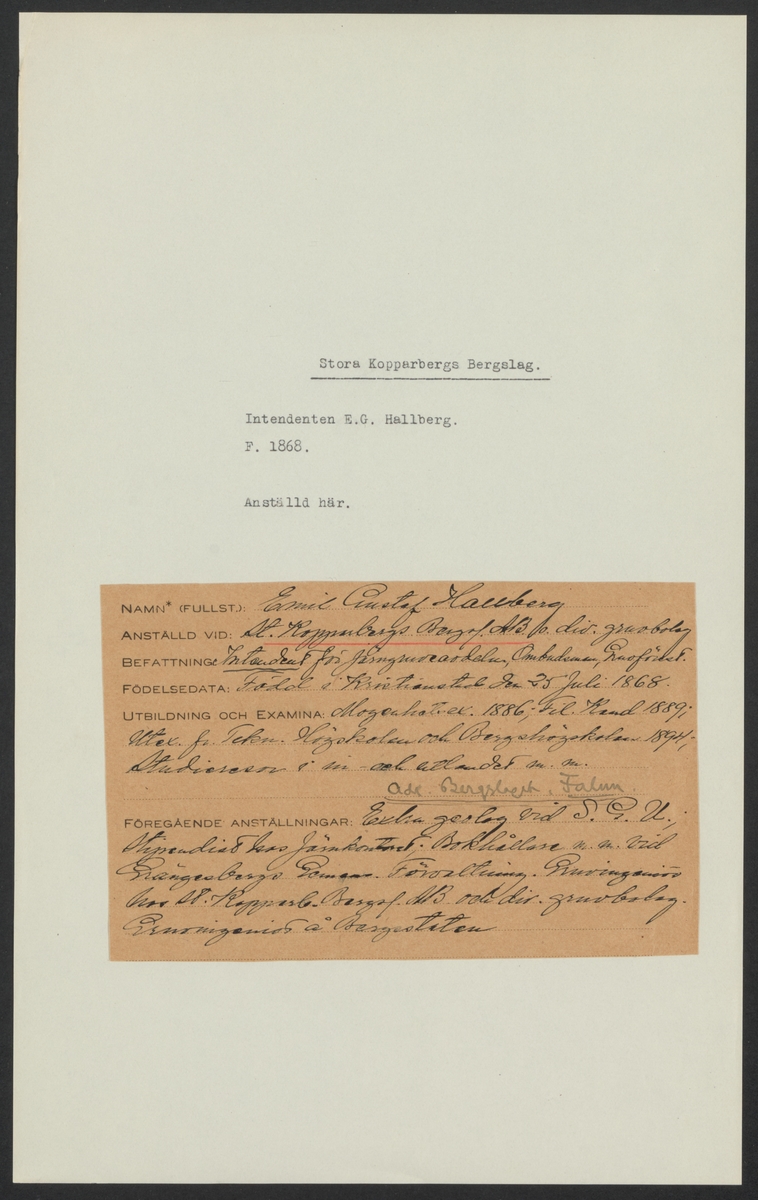 Stora Kopparbergs Bergslag.
Intendenten E.G. Hallberg.
F. 1868.
Anställd här.
NAMN* (FULLST.): Emil Gustaf Hallberg
ANSTÄLLD VID: St. Kopparbergs Bergsl. AB o. div. gruvbolag
BEFATTNING: Intendent för järngruveavdeln, Ombudsman, Gruvförest.
FÖDELSEDATA: Född i Kristianstad den 25 Juli 1868.
UTBILDNING OCH EXAMINA: Mogenhetsex. 1886; Fil. Kand 1889;
Utex. fr. Tekn. Högskolan och Bergshögskolan 1894;
Studieresor i in- och utlandet m. m.
adr. Bergslaget, Falun.
FÖREGÅENDE ANSTÄLLNINGAR: Extra geolog vid S. G. U.;
Stipendiat hos Järnkontoret; Bokhållare m. m. vid
Grängesbergs Gemens. Förvaltning. Gruvingeniör
hos St. Kopparb. Bergsl. AB och div. gruvbolag.
Gruvingeniör å Bergsstaten